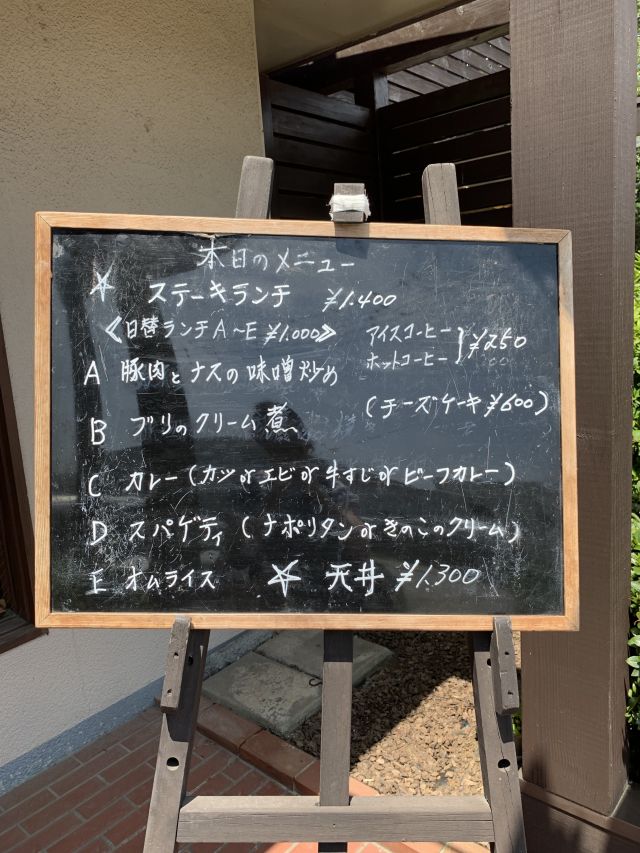 本日のメニュー
☆ ステーキランチ ¥1.400
《日替ランチA〜E ¥1.000》
アイスコーヒー
ホットコーヒー } ¥250
A 豚肉とナスの味噌炒め
(チーズケーキ¥600)
B ブリのクリーム煮
C カレー(カツorエビor牛すじorビーフカレー)
D スパゲティ(ナポリタンorきのこのクリーム)
E オムライス ☆ 天丼 ¥1.300